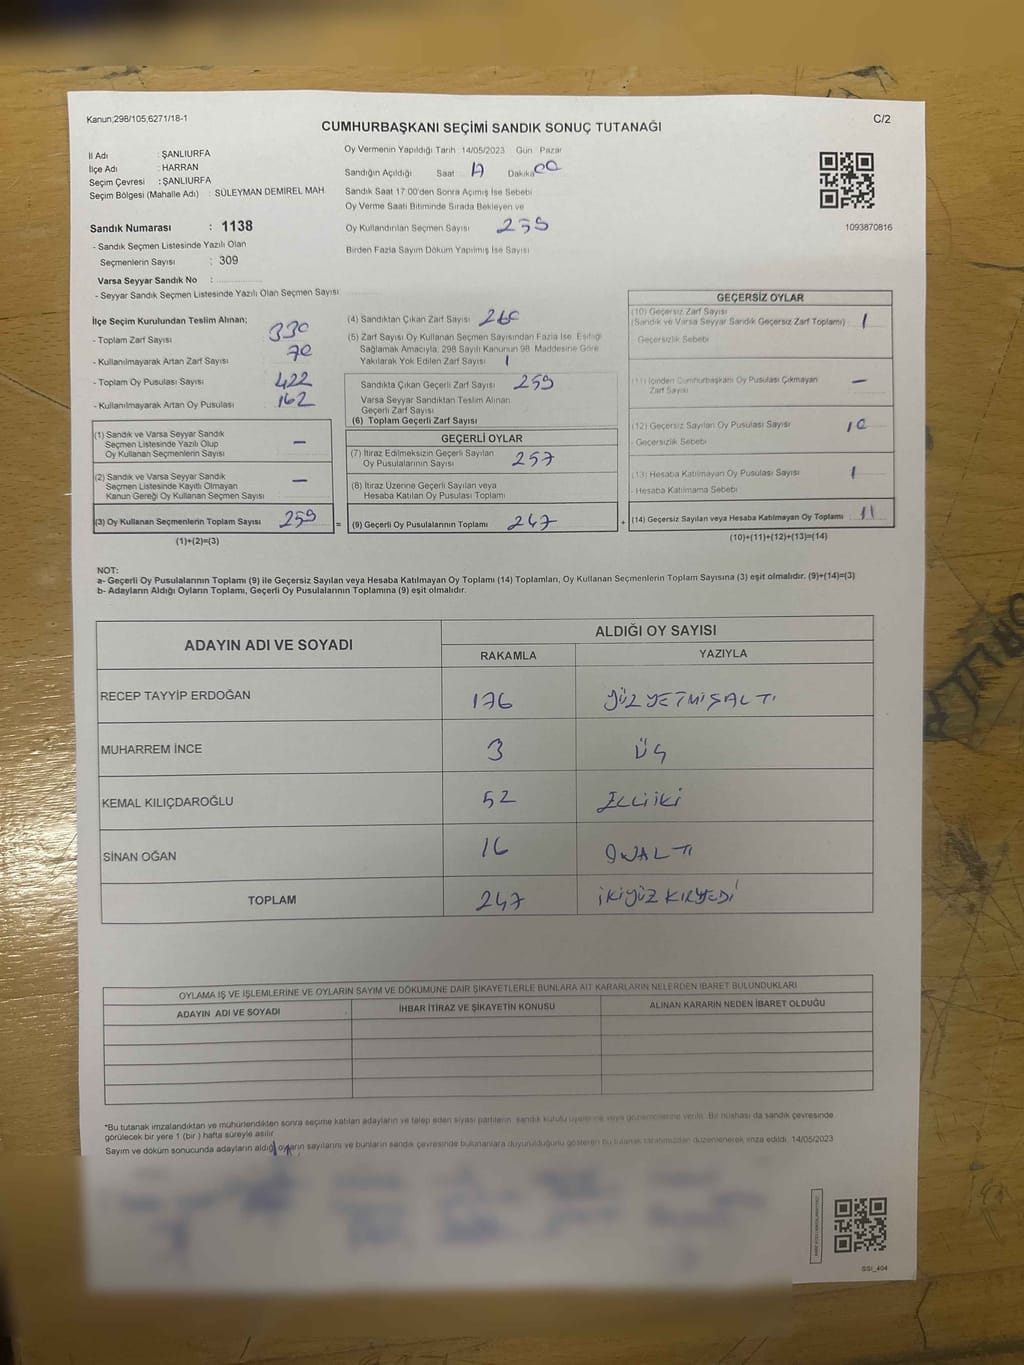 Kanun;298/105,6271/18-1
C/2
CUMHURBAŞKANI SEÇİMİ SANDIK SONUÇ TUTANAĞI
İl Adı : ŞANLIURFA
İlçe Adı : HARRAN
Seçim Çevresi : ŞANLIURFA
Seçim Bölgesi (Mahalle Adı) : SÜLEYMAN DEMİREL MAH.
Sandık Numarası : 1138
- Sandık Seçmen Listesinde Yazılı Olan
Seçmenlerin Sayısı : 309
Varsa Seyyar Sandık No :
- Seyyar Sandık Seçmen Listesinde Yazılı Olan Seçmen Sayısı
Oy Vermenin Yapıldığı Tarih : 14/05/2023 Gün : Pazar
Sandığın Açıldığı Saat 17 Dakika 00
Sandık Saat 17:00'den Sonra Açımış İse Sebebi
Oy Verme Saati Bitiminde Sırada Bekleyen ve
Oy Kullandırılan Seçmen Sayısı 259
Birden Fazla Sayım Döküm Yapılmış İse Sayısı
1093870816
İlçe Seçim Kurulundan Teslim Alınan;
- Toplam Zarf Sayısı : 330
- Kullanılmayarak Artan Zarf Sayısı : 70
- Toplam Oy Pusulası Sayısı : 422
- Kullanılmayarak Artan Oy Pusulası : 162
(1) Sandık ve Varsa Seyyar Sandık
Seçmen Listesinde Yazılı Olup
Oy Kullanan Seçmenlerin Sayısı : –
(2) Sandık ve Varsa Seyyar Sandık
Seçmen Listesinde Kayıtlı Olmayan
Kanun Gereği Oy Kullanan Seçmen Sayısı –
(3) Oy Kullanan Seçmenlerin Toplam Sayısı 259 =
(1)+(2)=(3)
(4) Sandıktan Çıkan Zarf Sayısı 260
(5) Zarf Sayısı Oy Kullanan Seçmen Sayısından Fazla İse, Eşitliği
Sağlamak Amacıyla, 298 Sayılı Kanunun 98. Maddesine Göre
Yakılarak Yok Edilen Zarf Sayısı : 1
Sandıkta Çıkan Geçerli Zarf Sayısı 259
Varsa Seyyar Sandıktan Teslim Alınan
Geçerli Zarf Sayısı
(6) Toplam Geçerli Zarf Sayısı
GEÇERLİ OYLAR
(7) İtiraz Edilmeksizin Geçerli Sayılan
Oy Pusulalarının Sayısı 257
(8) İtiraz Üzerine Geçerli Sayılan veya
Hesaba Katılan Oy Pusulası Toplamı
(9) Geçerli Oy Pusulalarının Toplamı 247 +
GEÇERSİZ OYLAR
(10) Geçersiz Zarf Sayısı
(Sandık ve Varsa Seyyar Sandık Geçersiz Zarf Toplamı) : 1
Geçersizlik Sebebi
(11) İçinden Cumhurbaşkanı Oy Pusulası Çıkmayan
Zarf Sayısı –
(12) Geçersiz Sayılan Oy Pusulası Sayısı : 10
- Geçersizlik Sebebi
(13) Hesaba Katılmayan Oy Pusulası Sayısı : 1
- Hesaba Katılmama Sebebi
(14) Geçersiz Sayılan veya Hesaba Katılmayan Oy Toplamı : 11
(10)+(11)+(12)+(13)=(14)
NOT:
a- Geçerli Oy Pusulalarının Toplamı (9) ile Geçersiz Sayılan veya Hesaba Katılmayan Oy Toplamı (14) Toplamları, Oy Kullanan Seçmenlerin Toplam Sayısına (3) eşit olmalıdır. (9)+(14)=(3)
b- Adayların Aldığı Oyların Toplamı, Geçerli Oy Pusulalarının Toplamına (9) eşit olmalıdır.
ADAYIN ADI VE SOYADI
ALDIĞI OY SAYISI
RAKAMLA YAZIYLA
RECEP TAYYİP ERDOĞAN 176 YÜZ YETMİŞALTI
MUHARREM İNCE 3 ÜÇ
KEMAL KILIÇDAROĞLU 52 ELLİİKİ
SİNAN OĞAN 16 ONALTI
TOPLAM 247 İKİYÜZ KIRKYEDİ
OYLAMA İŞ VE İŞLEMLERİNE VE OYLARIN SAYIM VE DÖKÜMÜNE DAİR ŞİKAYETLERLE BUNLARA AİT KARARLARIN NELERDEN İBARET BULUNDUKLARI
ADAYIN ADI VE SOYADI İHBAR İTİRAZ VE ŞİKAYETİN KONUSU ALINAN KARARIN NEDEN İBARET OLDUĞU
*Bu tutanak imzalandıktan ve mühürlendikten sonra seçime katılan adayların ve talep eden siyasi partilerin sandık kurulu üyelerine veya gözlemcilerine verilir. Bir nüshası da sandık çevresinde
görülecek bir yere 1 (bir) hafta süreyle asılır.
Sayım ve döküm sonucunda adayların aldığı oyların sayılarını ve bunların sandık çevresinde bulunanlara duyurulduğunu gösteren bu tutanak tarafımızdan düzenlenerek imza edildi. 14/05/2023
SSI_404